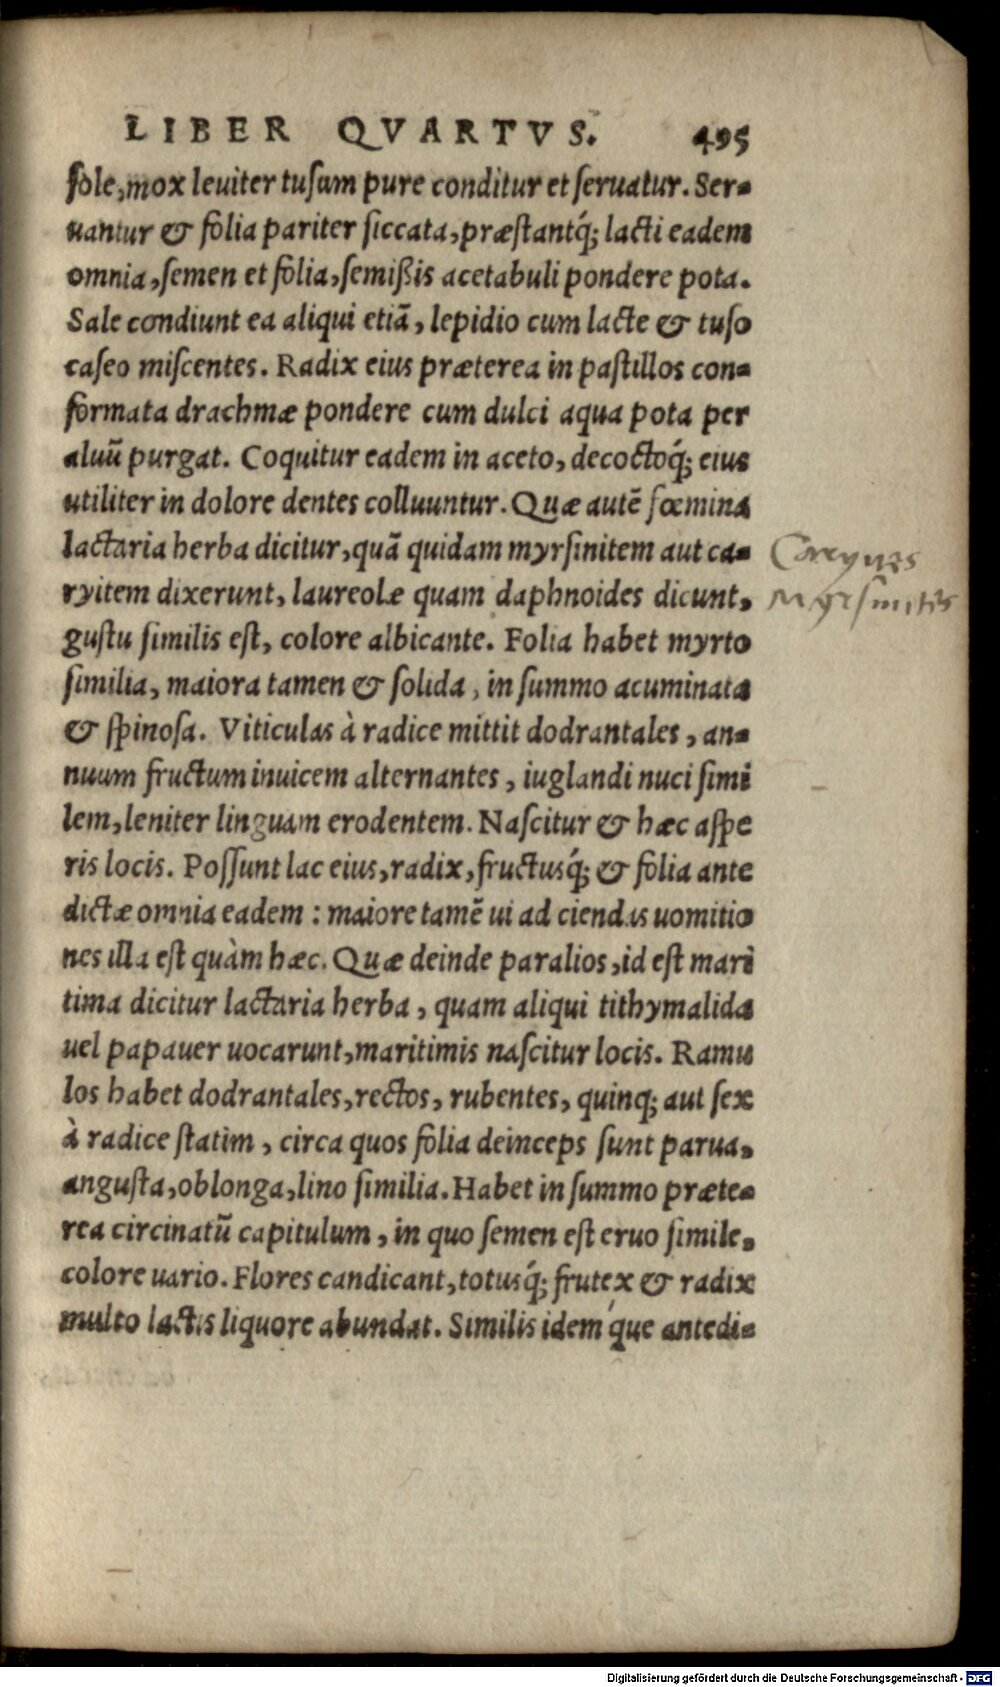 LIBER QVARTVS. 495
ſole, mox leuiter tuſum pure conditur et ſeruatur. Ser-
uantur & folia pariter ſiccata, præſtantq́; lacti eadem
omnia, ſemen et folia, ſemißis acetabuli pondere pota.
Sale condiunt ea aliqui etiã, lepidio cum lacte & tuſo
caſeo miſcentes. Radix eius præterea in paſtillos con-
formata drachmæ pondere cum dulci aqua pota per
aluũ purgat. Coquitur eadem in aceto, decoctoq́; eius
utiliter in dolore dentes colluuntur. Quæ autẽ fœmina
lactaria herba dicitur, quã quidam myrſinitem aut ca-
ryitem dixerunt, laureolæ quam daphnoides dicunt,
guſtu ſimilis eſt, colore albicante. Folia habet myrto
ſimilia, maiora tamen & ſolida, in ſummo acuminata
& ſpinoſa. Viticulas à radice mittit dodrantales, an-
nuum fructum inuicem alternantes, iuglandi nuci ſimi
lem, leniter linguam erodentem. Naſcitur & hæc aſpe
ris locis. Poſſunt lac eius, radix, fructusq́; & folia ante
dictæ omnia eadem: maiore tamẽ ui ad ciendas uomitio
nes illa eſt quàm hæc. Quæ deinde paralios, id eſt mari
tima dicitur lactaria herba, quam aliqui tithymalida
uel papauer uocarunt, maritimis naſcitur locis. Ramu
los habet dodrantales, rectos, rubentes, quinq; aut ſex
à radice ſtatim, circa quos folia deinceps ſunt parua,
anguſta, oblonga, lino ſimilia. Habet in ſummo præte-
rea circinatũ capitulum, in quo ſemen eſt eruo ſimile,
colore uario. Flores candicant, totusq́; frutex & radix
multo lactis liquore abundat. Similis ideḿque antedi-
Myrsinitis
Digitalisierung gefördert durch die Deutsche Forschungsgemeinschaft - DFG